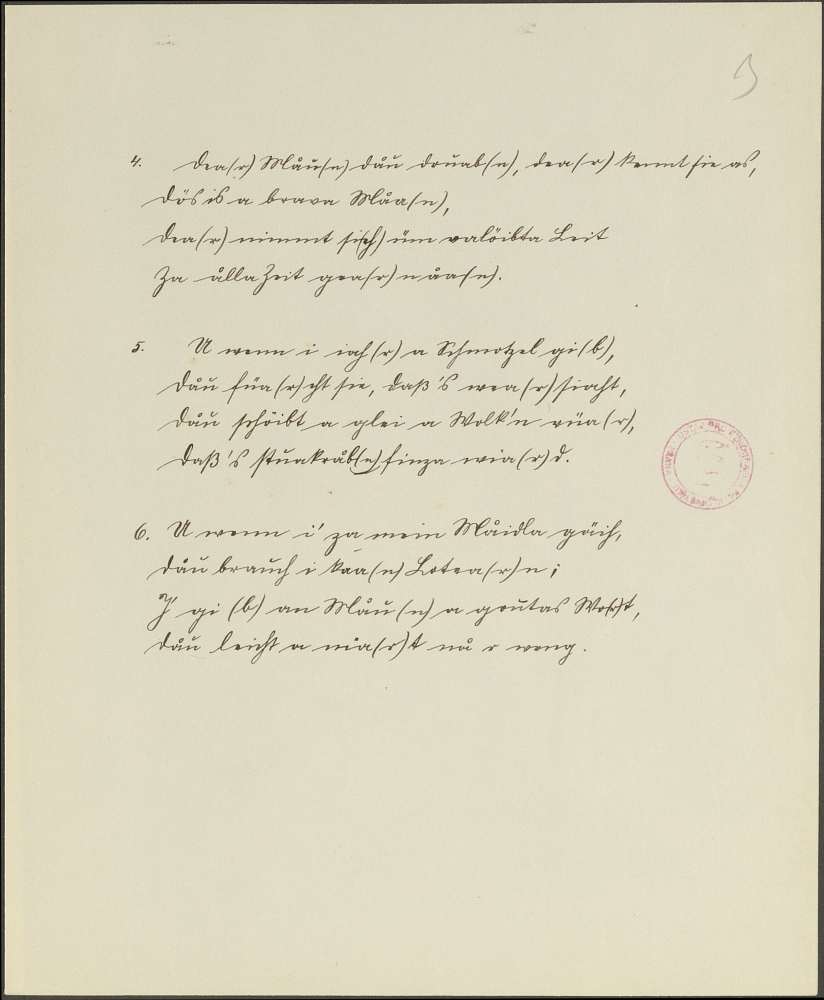 4. Dea(r) Måu(n) dåu druab(n), dea(r) kennt sie as,
dös is a brava Måa(n),
dea(r) nimmt si(ch) üm valöibta Leit
Za ålla Zeit gea(r)n åa(n).
5. U wenn i iah(r) a Schmotzel gi(b),
dåu füa(r)cht sie, daß's wea(r) siaht,
dåu schöibt a glei a Wolk'n vüa(r),
daß's stuakråb(n)finza wia(r)d.
6. U wenn i' za mein Måidla gäih,
dåu brauch i kaa(n) Lotea(r)n;
I gi(b) an Måu(n) a goutas Wo(r)t,
dåu leicht a mia(r)